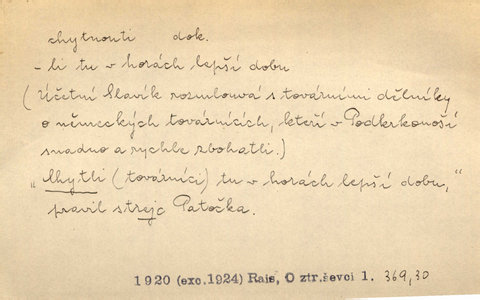 chytnouti dok.
- li tu v horách lepší dobu
(Účetní Slavík rozmlouvá s továrními dělníky
o německých továrnících, kteří v Podkrkonoší
snadno a rychle zbohatli.)
„Chytli (továrníci) tu v horách lepší dobu,"
pravil strejc Patočka.
1920 (exc.1924) Rais, O ztr.ševci 1. 369,30